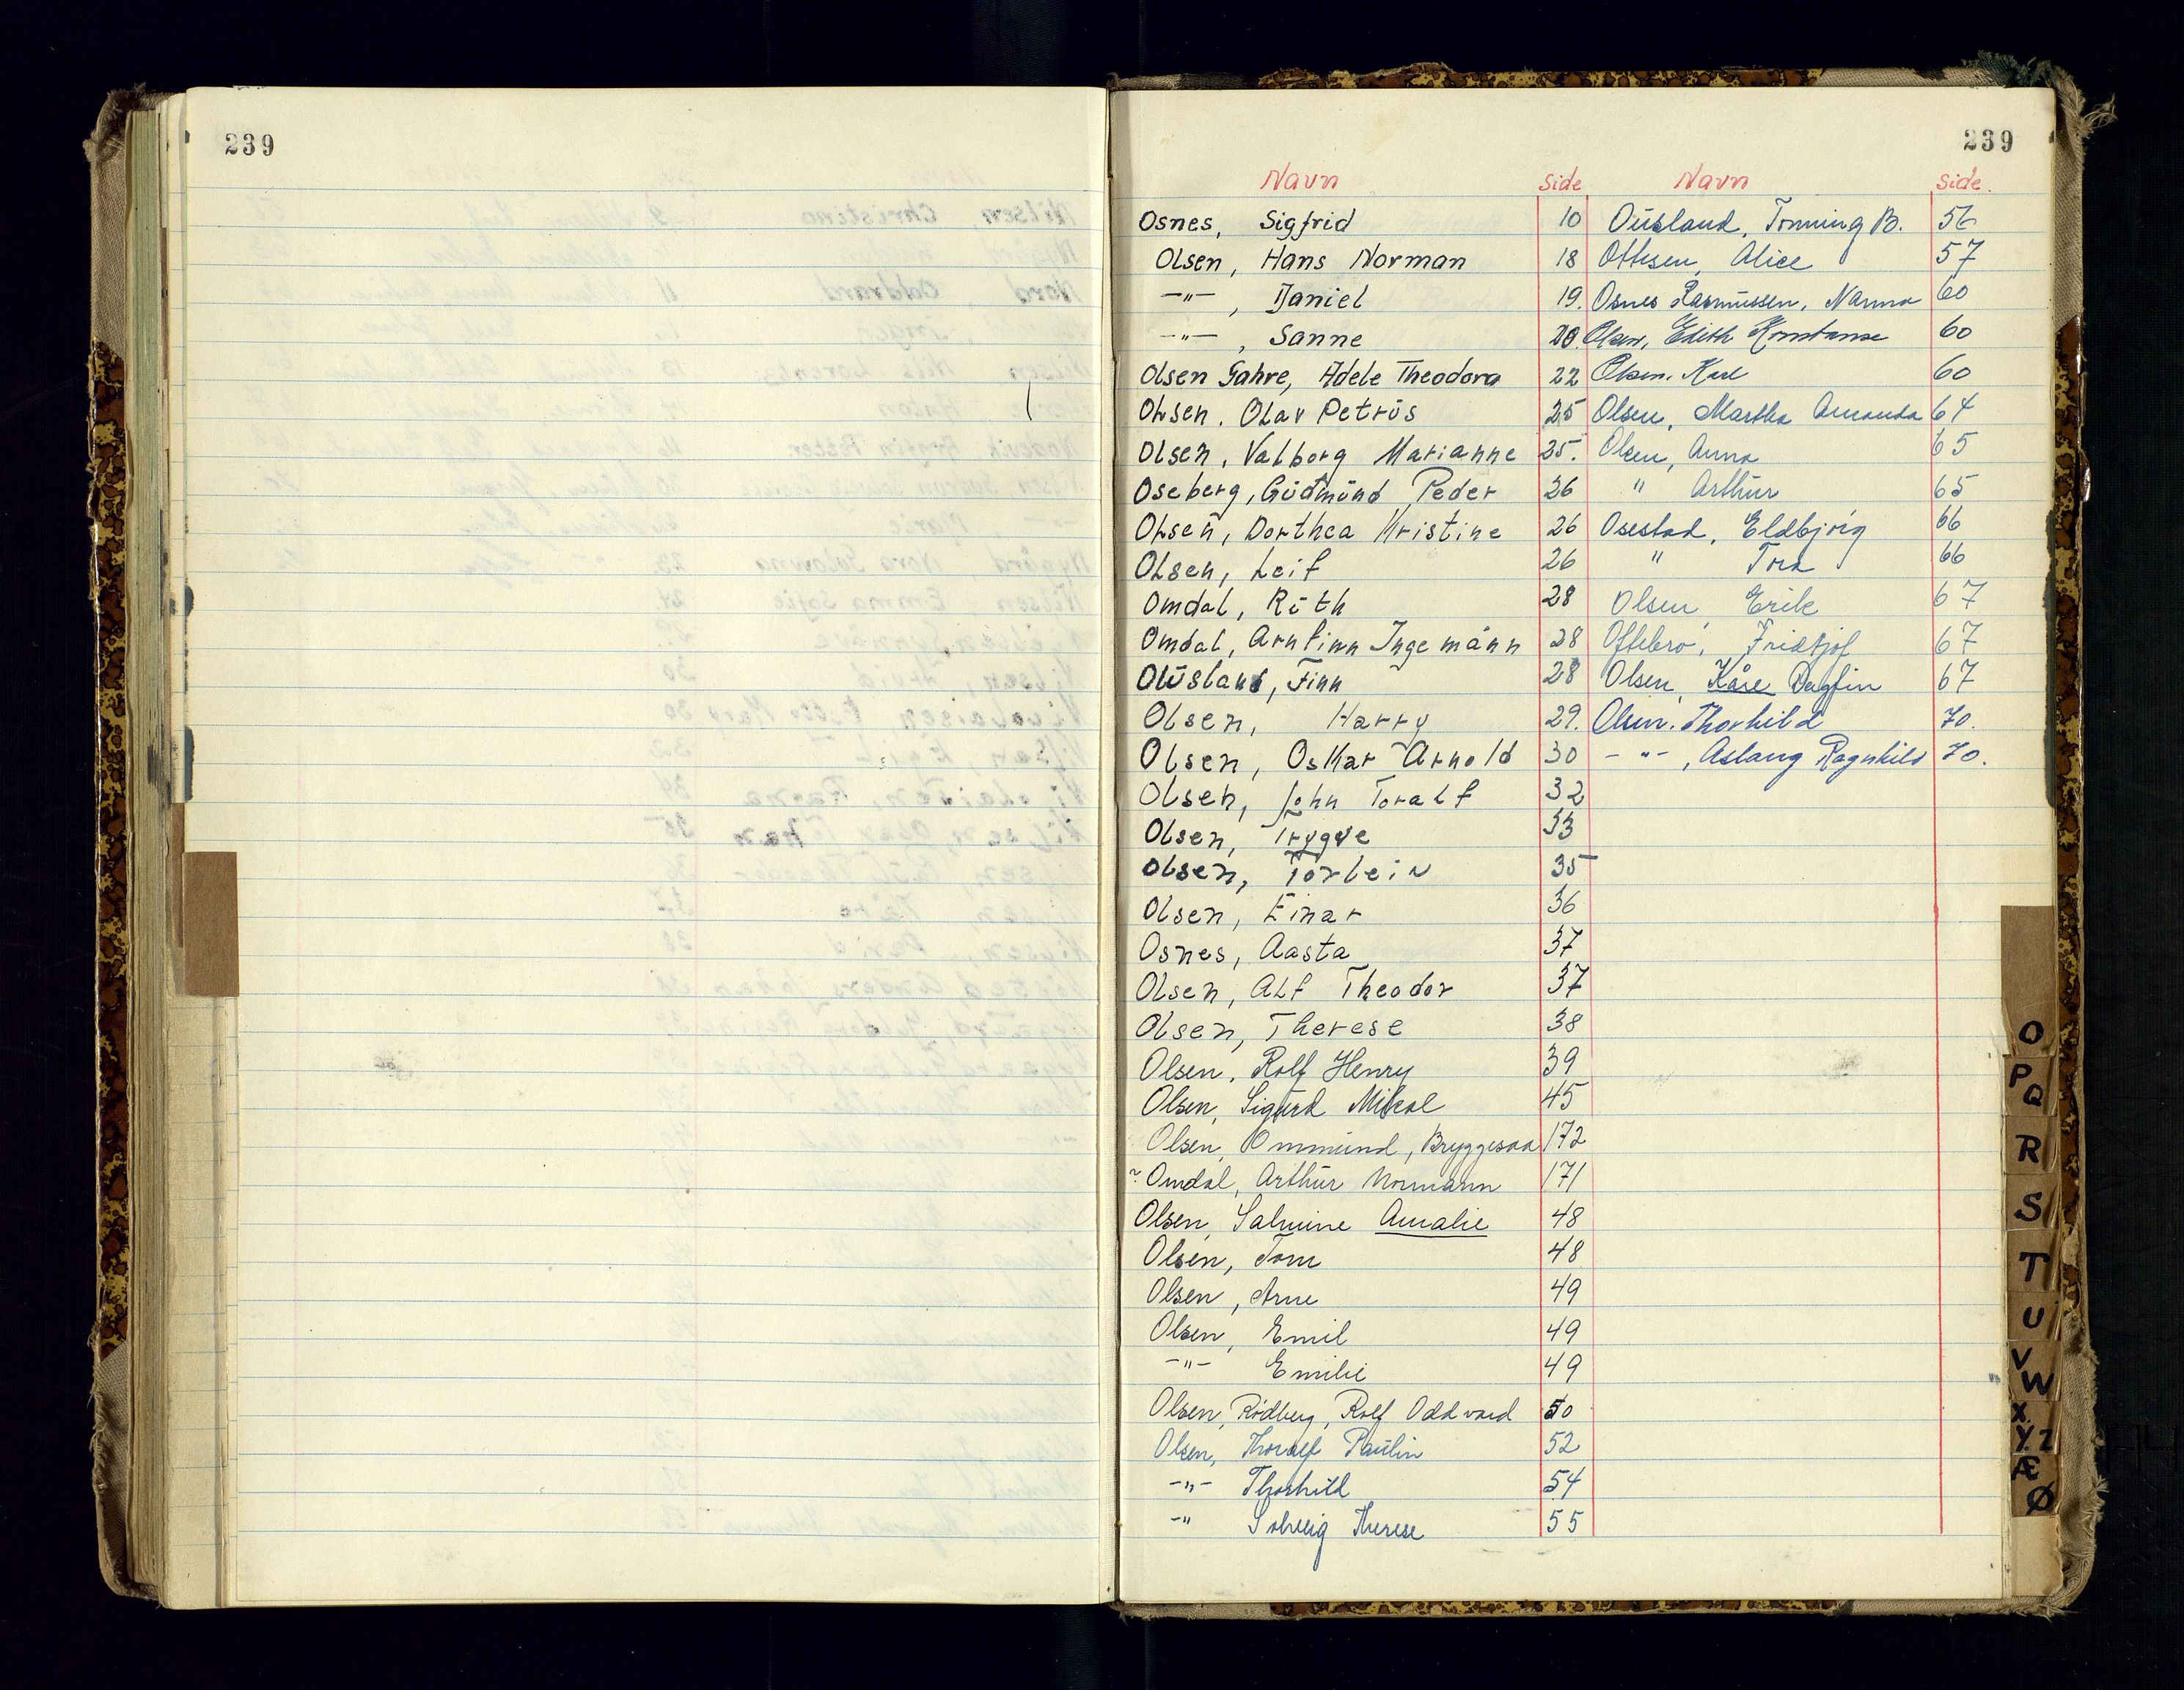 239
239
Navn Side Navn Side.
Osnes, Sigfrid 10
Olsen, Hans Norman 18
—"—, Daniel 19.
—"—, Sanne 20.
Olsen Gahre, Adele Theodora 22
Olsen. Olav Petrus 25
Olsen, Valborg Marianne 25.
Oseberg, Gudmund Peder 26
Olsen, Dorthea Kristine 26
Olsen, Leif 26
Omdal, Ruth 28
Omdal, Arnfinn Ingemann 28
Finn 28
Olsen, Harry 29.
Olsen, Oskar Arnold 30
Olsen, John Toralf 32
Olsen, Trygve 33
Olsen, Torleiv 35
Olsen, Einar 36
Osnes, Aasta 37
Olsen, Alf Theodor 37
Olsen, Therese 38
Olsen, Rolf Henry 39
Olsen, Sigurd Mikal 45
Olsen, Ommund, Bryggesaa 172
Omdal, Arthur Normann 171
Olsen, Salmine Amalie 48
Olsen, Tom 48
Olsen, Arne 49
Olsen, Emil 49
—"— Emilie 49
Olsen, Rødberg, Rolf Oddvard 50
Olsen, Thoralf Paulin 52
—"— Thorhild 54
—" Solveig Therese 55
Ousland, Tonning B. 56
Ottesen, Alice 57
Osnes Rasmussen, Nanna 60
Olsen, Edith Konstanse 60
Olsen. Karl 60
Olsen, Martha Amanda 64
Olsen, Anna 65
" Arthur 65
Osestad, Eldbjørg 66
" Tora 66
Olsen, Erik 67
Oftebro, Fridtjof 67
Olsen, Kåre Dagfin 67
Olsen. Thorhild 70.
—"—, Aslaug Ragnhild 70.
O
P
Q
R
S
T
U
V
W
X
Y Z
Æ
Ø